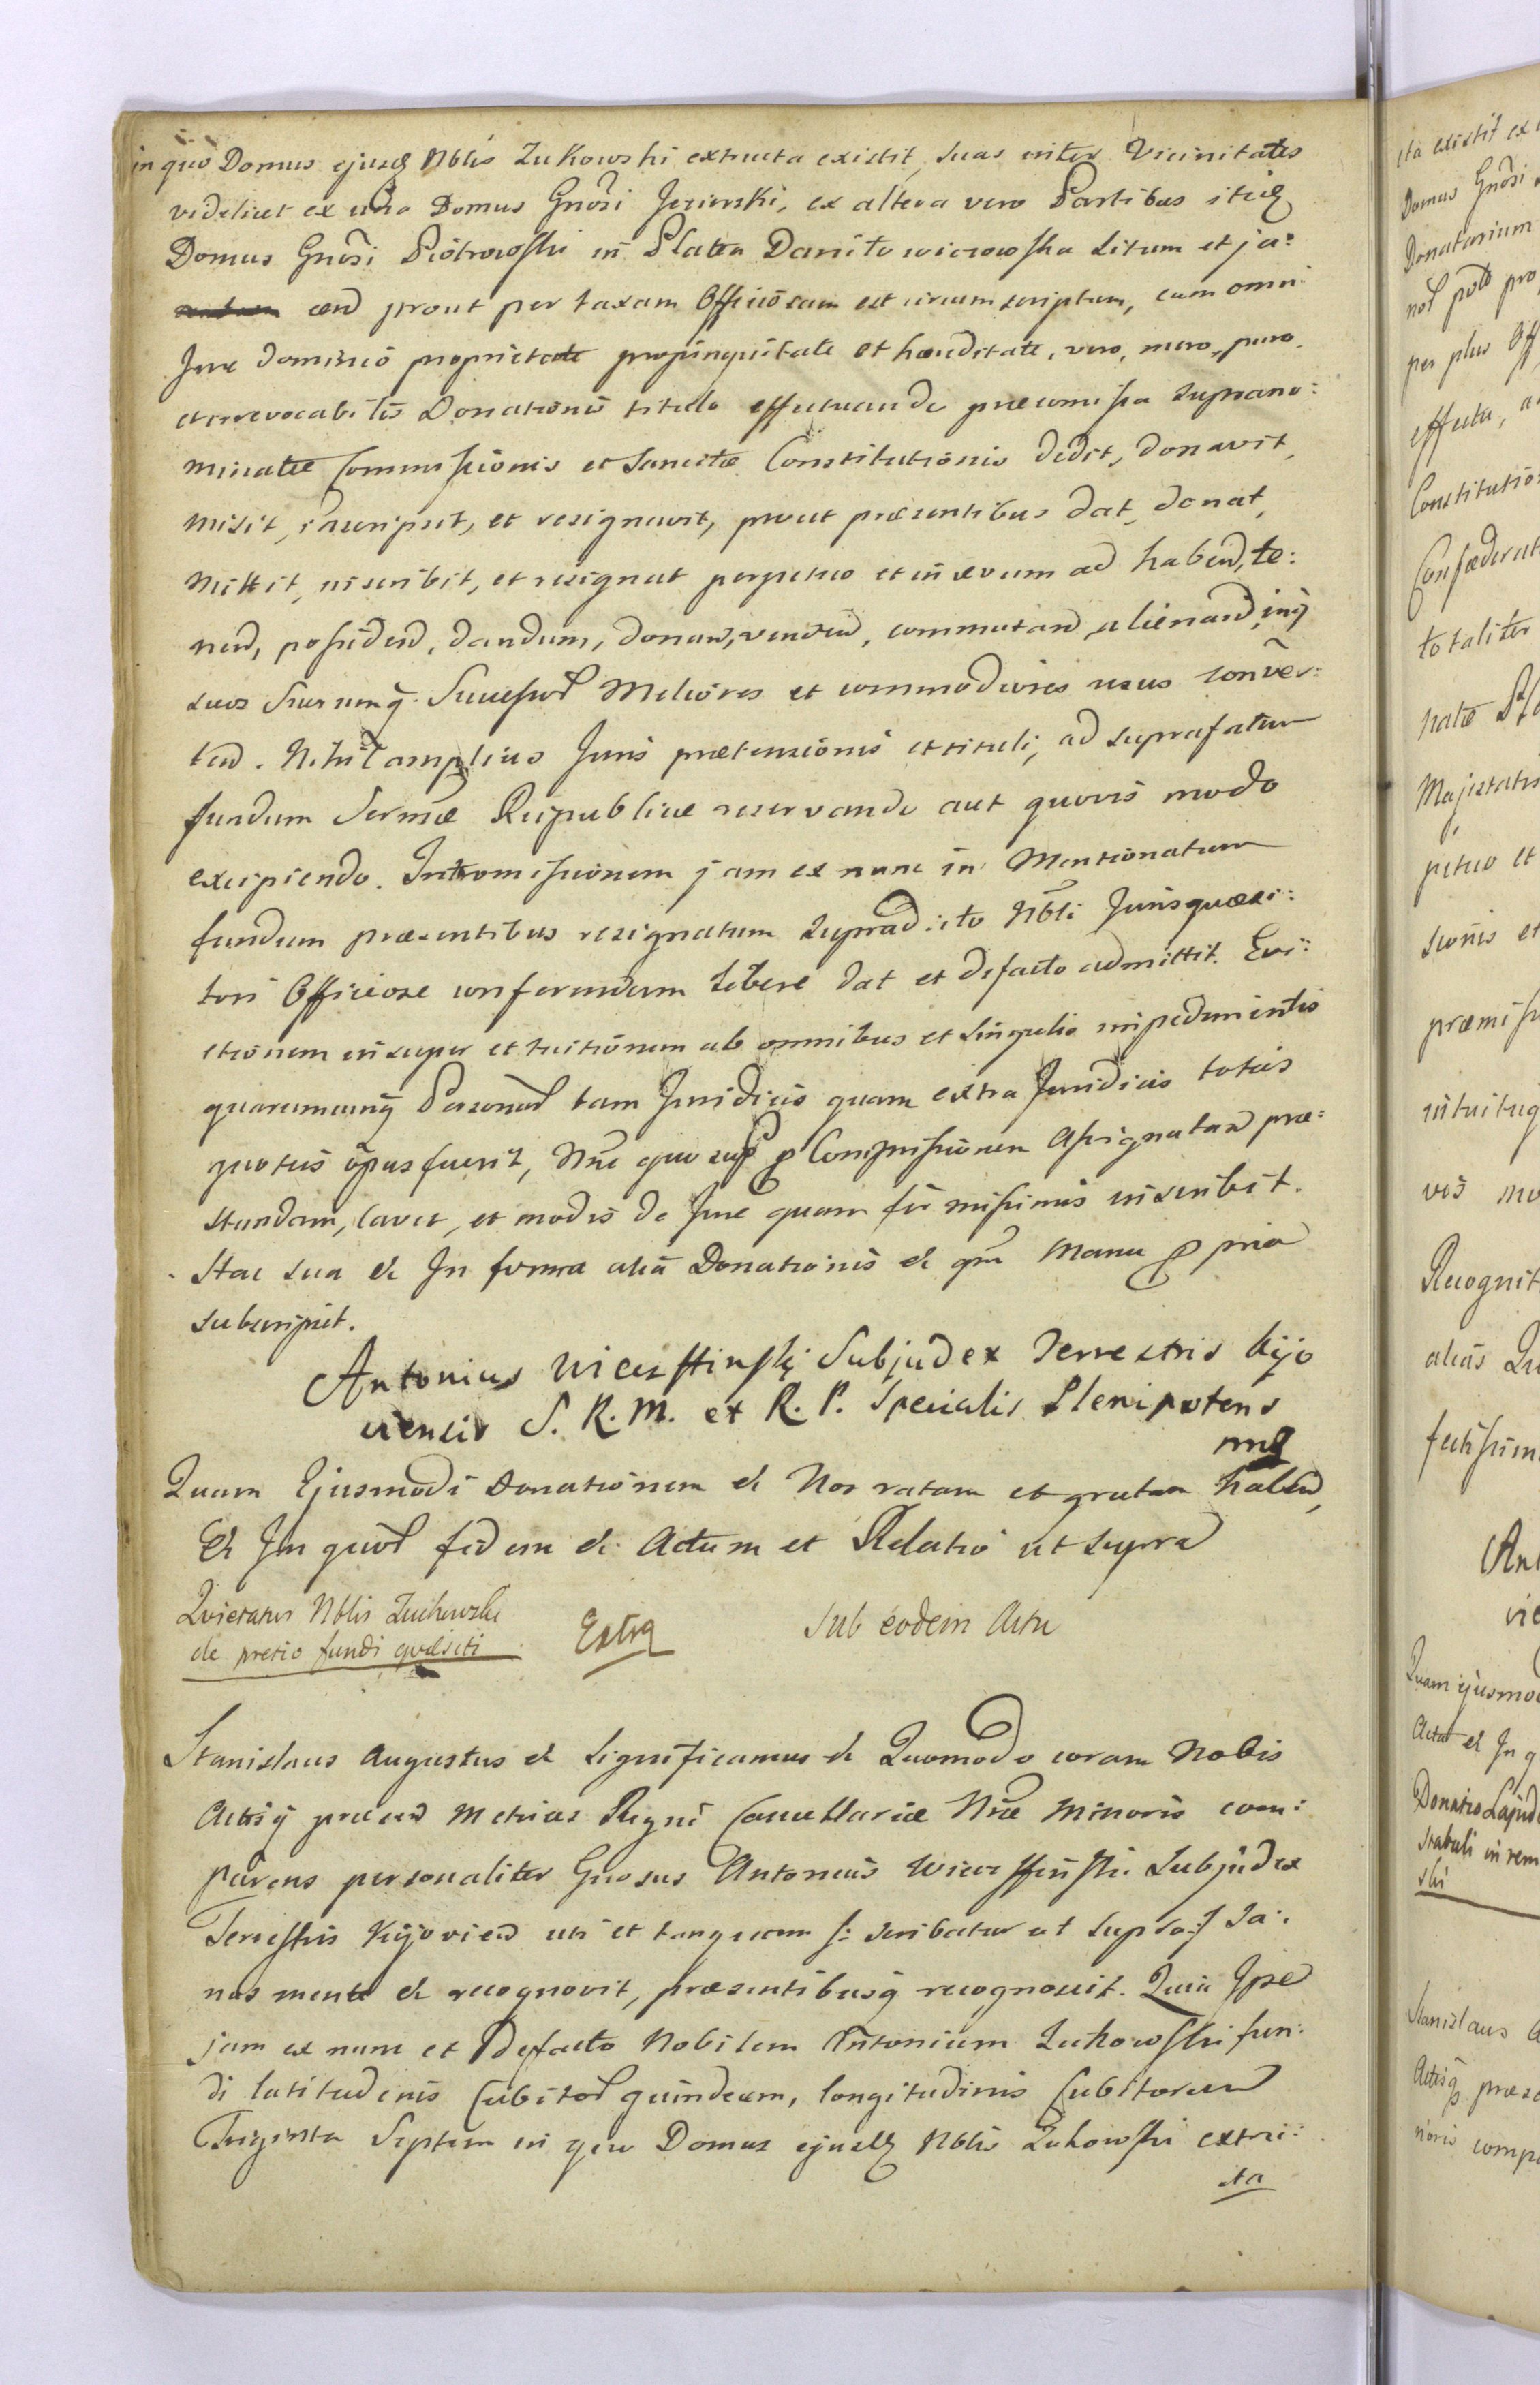 in quo Domus ejusq Nblis Zukowski extructa existit, suas inter Vicinitates
videlicet ex una Domus Gnosi Jezierski, ex altera vero Partibus itidq
Domus Gnosi Piotrowski in Platea Daniłowiczowska situm et ja:
cen prout per taxam Officiosam est circumscriptum, cum omni
Jure dominio proprietate propinquitate et hæreditate, vero, mero, puro
et irrevocabilis Donationis titulo effectuando præcomissa supranomi:
minatæ Commissionis et Sancitæ Constitutionis dedit, donavit,
misit, inscripsit, et resignavit, prout præsentibus dat, donat,
mittit, inscribit, et resignat perpetuo et in ævum ad habend, te:
nend, possidend, dandum, donand, vendend, commutand, alienand, inq
suos suorumq Successor Meliores et commodiores usus conver:
tend. Nihil amplius Juris prætensionis et tituli, ad suprafatum
fundum Sermæ Reipublicæ reservando aut quovis modo
excipiendo. Intromissionem jam ex nunc in Mentionatum
fundum præsentibus resignatum supradicto Nbli Jurisquæsi:
tori Officiose conferendam libere dat et defacto admittit. Evi:
ctionem insuper et tuitionem ab omnibus et singulis impedimentis
quarumcunq Personar tam Juridicis quam extra Juridicis toties
quoties opus fuerit, Nne quo sup p Commissionem Assignatam præ:
standam, cavet, et modis de Jure quam firmissimis inscribit.
Stac sua et In forma aliâ Donationis et qm Manu ppria
subscripsit.
Antonius Wiesztinsky Subjudex Terrestris Kijo
viensis S. R. M. et R. P. Specialis Plenipotens
mp
Quam Ejusmodi Donationem et Nos ratam et gratam haben,
Et In quor fidem et Actum et Relatio ut supra
Quietatur Nblis Zuchowski
de pretio fundi quæsiti
Extra
Sub eodem Actu
Stanislaus Augustus et Significamus et Quomodo coram Nobis
Actisq præsen Metrices Regni Cancellariæ Nræ Minoris com:
parens personaliter Gnosus Antonius Wiesztinski Subjudex
Terrestris Kijovien uti et tanquam /: scribatur ut supra :/ Sa:
nus mente et recognovit, præsentibusq recognoscit. Quia Ipse
jam ex nunc et Defacto Nobilem Antonium Zukowski fun:
di latitudinis Cubitor quindecem, longitudinis Cubitorum
Triginta Septem in quo Domus ejusdq Nblis Zukowski extru:
cta
sta existit ex
Domus Gnosi
Donatarium
per plus Off
effectu, a
Constitutio:
Confæderat
totaliter
natæ
Majestatis
petuo et
sionis et
præmiss
intuituq
vis mo
Recognit
alias Qu
fectissim
Ant
vie
Quam ejusmod
Actu et In q
Donatio Lapid
Stabuli in rem
ski
Stanislaus A
Actisq præse
noris comp